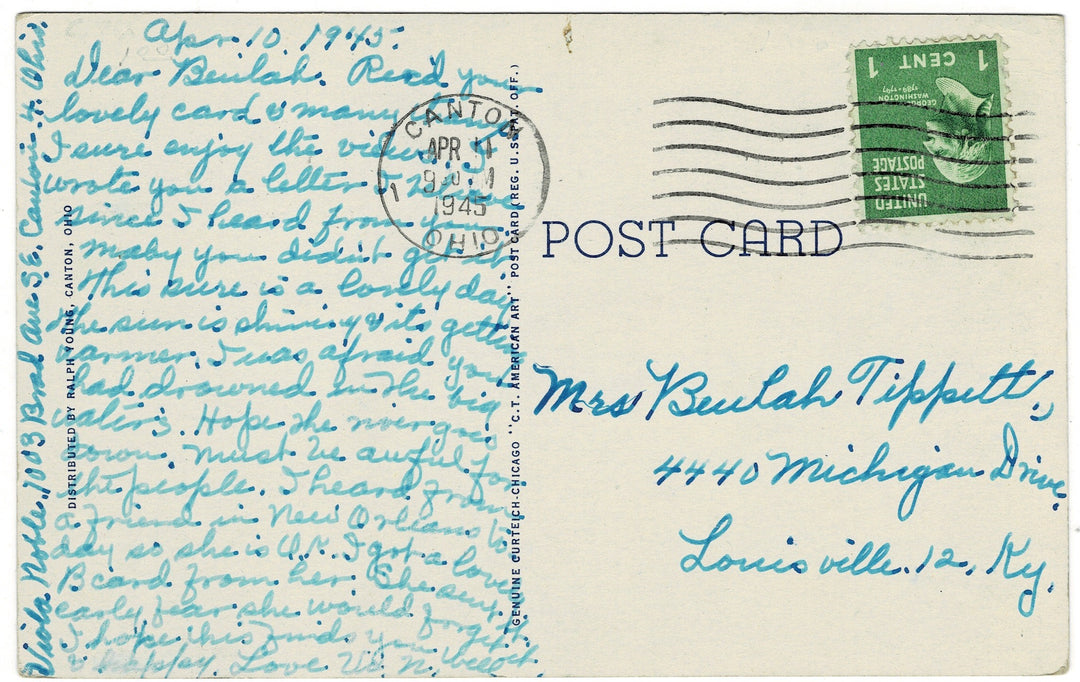 Apr. 10. 1945.
Dear Beulah. Rec'd your
lovely card & many
I sure enjoy the views. I
wrote you a letter
since I heard from you
maby you didn't get it.
This sure is a lovely day
the sun is shining & its getting
warmer. I was afraid you
had drowned in the big
waters. Hope the river goes
down. Must be awful for
the people. I heard from
a friend in New Orleans to
day so she is O.K. I got a lovely
B card from her. She sent
early fear she would forget it.
I hope this finds you well
& happy. Love Vi. N.
Viola Noble. 1003 Broad Ave S.E. Canton. 4. Ohio.
DISTRIBUTED BY RALPH YOUNG, CANTON, OHIO
GENUINE CURTEICH-CHICAGO "C.T. AMERICAN ART" POST CARD (REG. U.S. PAT. OFF.)
CANTON
APR 11
1945
OHIO
1
POST CARD
1 CENT 1
GEORGE
WASHINGTON
1789-1797
UNITED
STATES
POSTAGE
Mrs Beulah Tippett.
4440 Michigan Drive.
Louisville. 12. Ky.